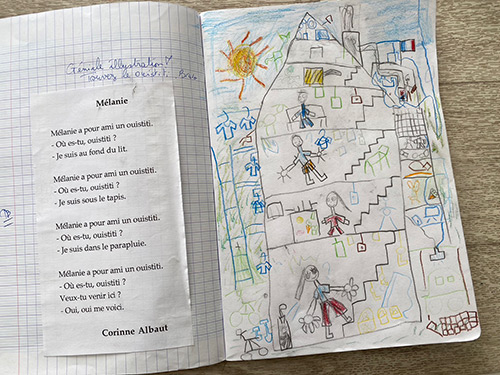 Géniale illustration !
Trouvez le ouistiti. Bravo
Mélanie
Mélanie a pour ami un ouistiti.
- Où es-tu, ouistiti ?
- Je suis au fond du lit.
Mélanie a pour ami un ouistiti.
- Où es-tu, ouistiti ?
- Je suis sous le tapis.
Mélanie a pour ami un ouistiti.
- Où es-tu, ouistiti ?
- Je suis dans le parapluie.
Mélanie a pour ami un ouistiti.
- Où es-tu, ouistiti ?
Veux-tu venir ici ?
- Oui, oui me voici.
Corinne Albaut